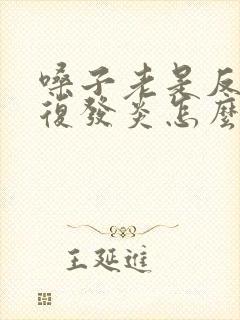 嗓子老是反
復發炎怎麼
王延進